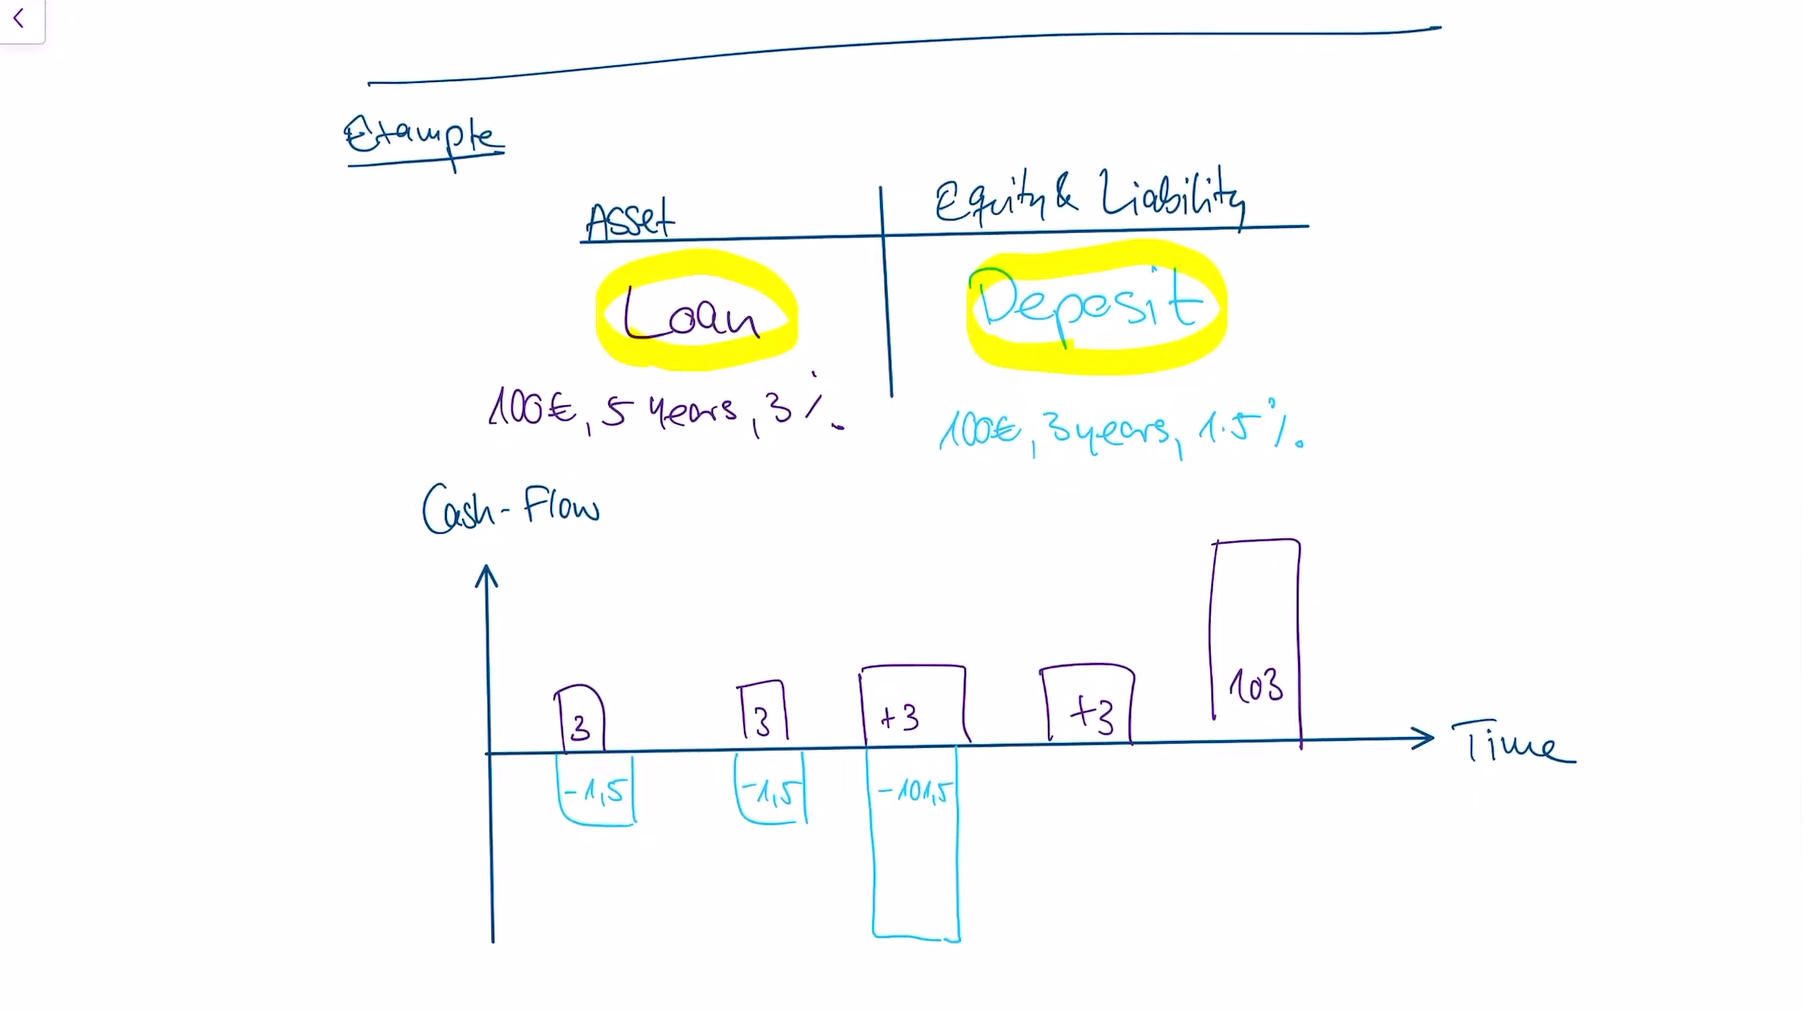 Example
Asset Equity & Liability
Loan Deposit
100€, 5 years, 3%. 100€, 3years, 1.5%.
Cash-Flow
3 3 +3 +3 103
Time
-1,5 -1,5 -101,5